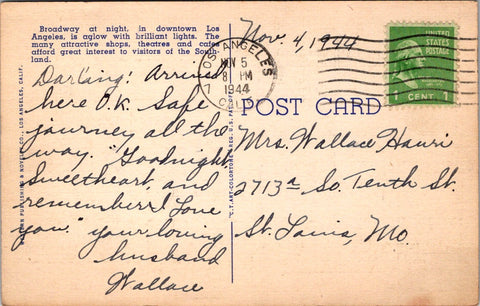 Broadway at night, in downtown Los
Angeles, is aglow with brilliant lights. The
many attractive shops, theatres and cafes
afford great interest to visitors of the South-
land.
Nov. 4, 1944
LOS ANGELES
NOV 5
8 PM
1944
UNITED
STATES
POSTAGE
1 CENT 1
POST CARD
Darling: Arrived
here O.K. Safe
journey all the
way. "Goodnight"
Sweetheart, and
remember I Love
you." your loving
husband
Wallace
Mrs. Wallace
2713a So. Tenth St.
St. Louis, Mo.
PUBLISHING & NOVELTY CO., LOS ANGELES, CALIF.
"C.T. ART-COLORTONE" REG. U.S. PAT. OFF.